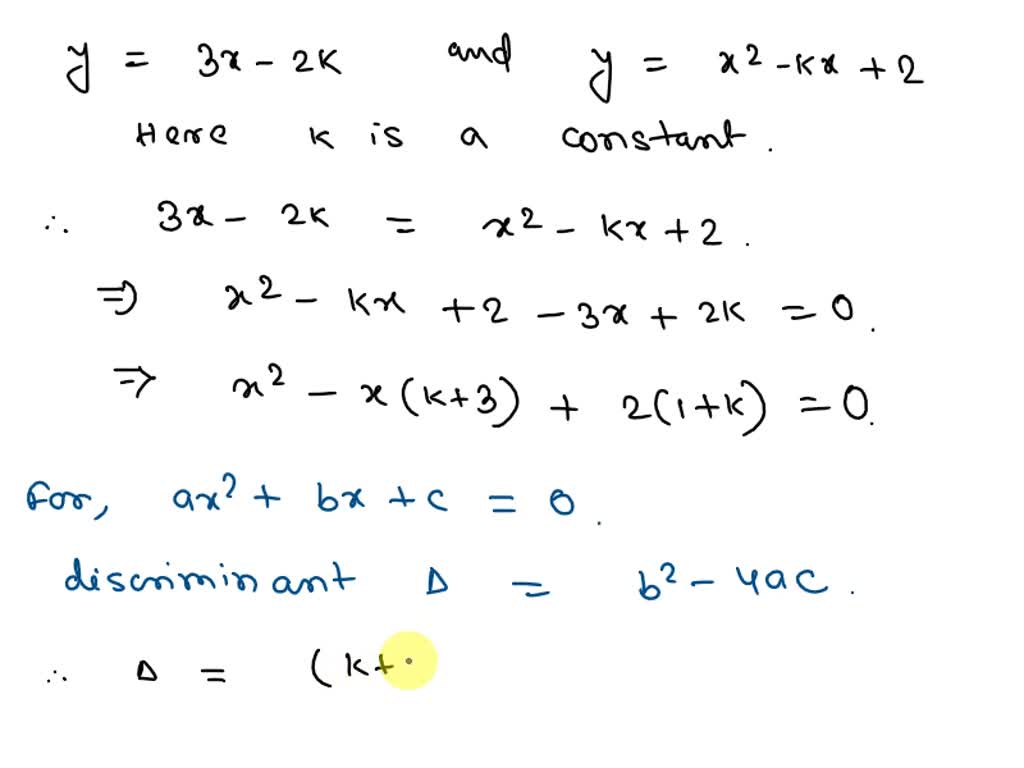 y = 3x - 2k and y = x² - kx + 2
Here k is a constant.
∴ 3x - 2k = x² - kx + 2.
⇒ x² - kx + 2 - 3x + 2k = 0.
⇒ x² - x(k+3) + 2(1+k) = 0.
For, ax² + bx + c = 0.
discriminant Δ = b² - 4ac.
∴ Δ = (k+